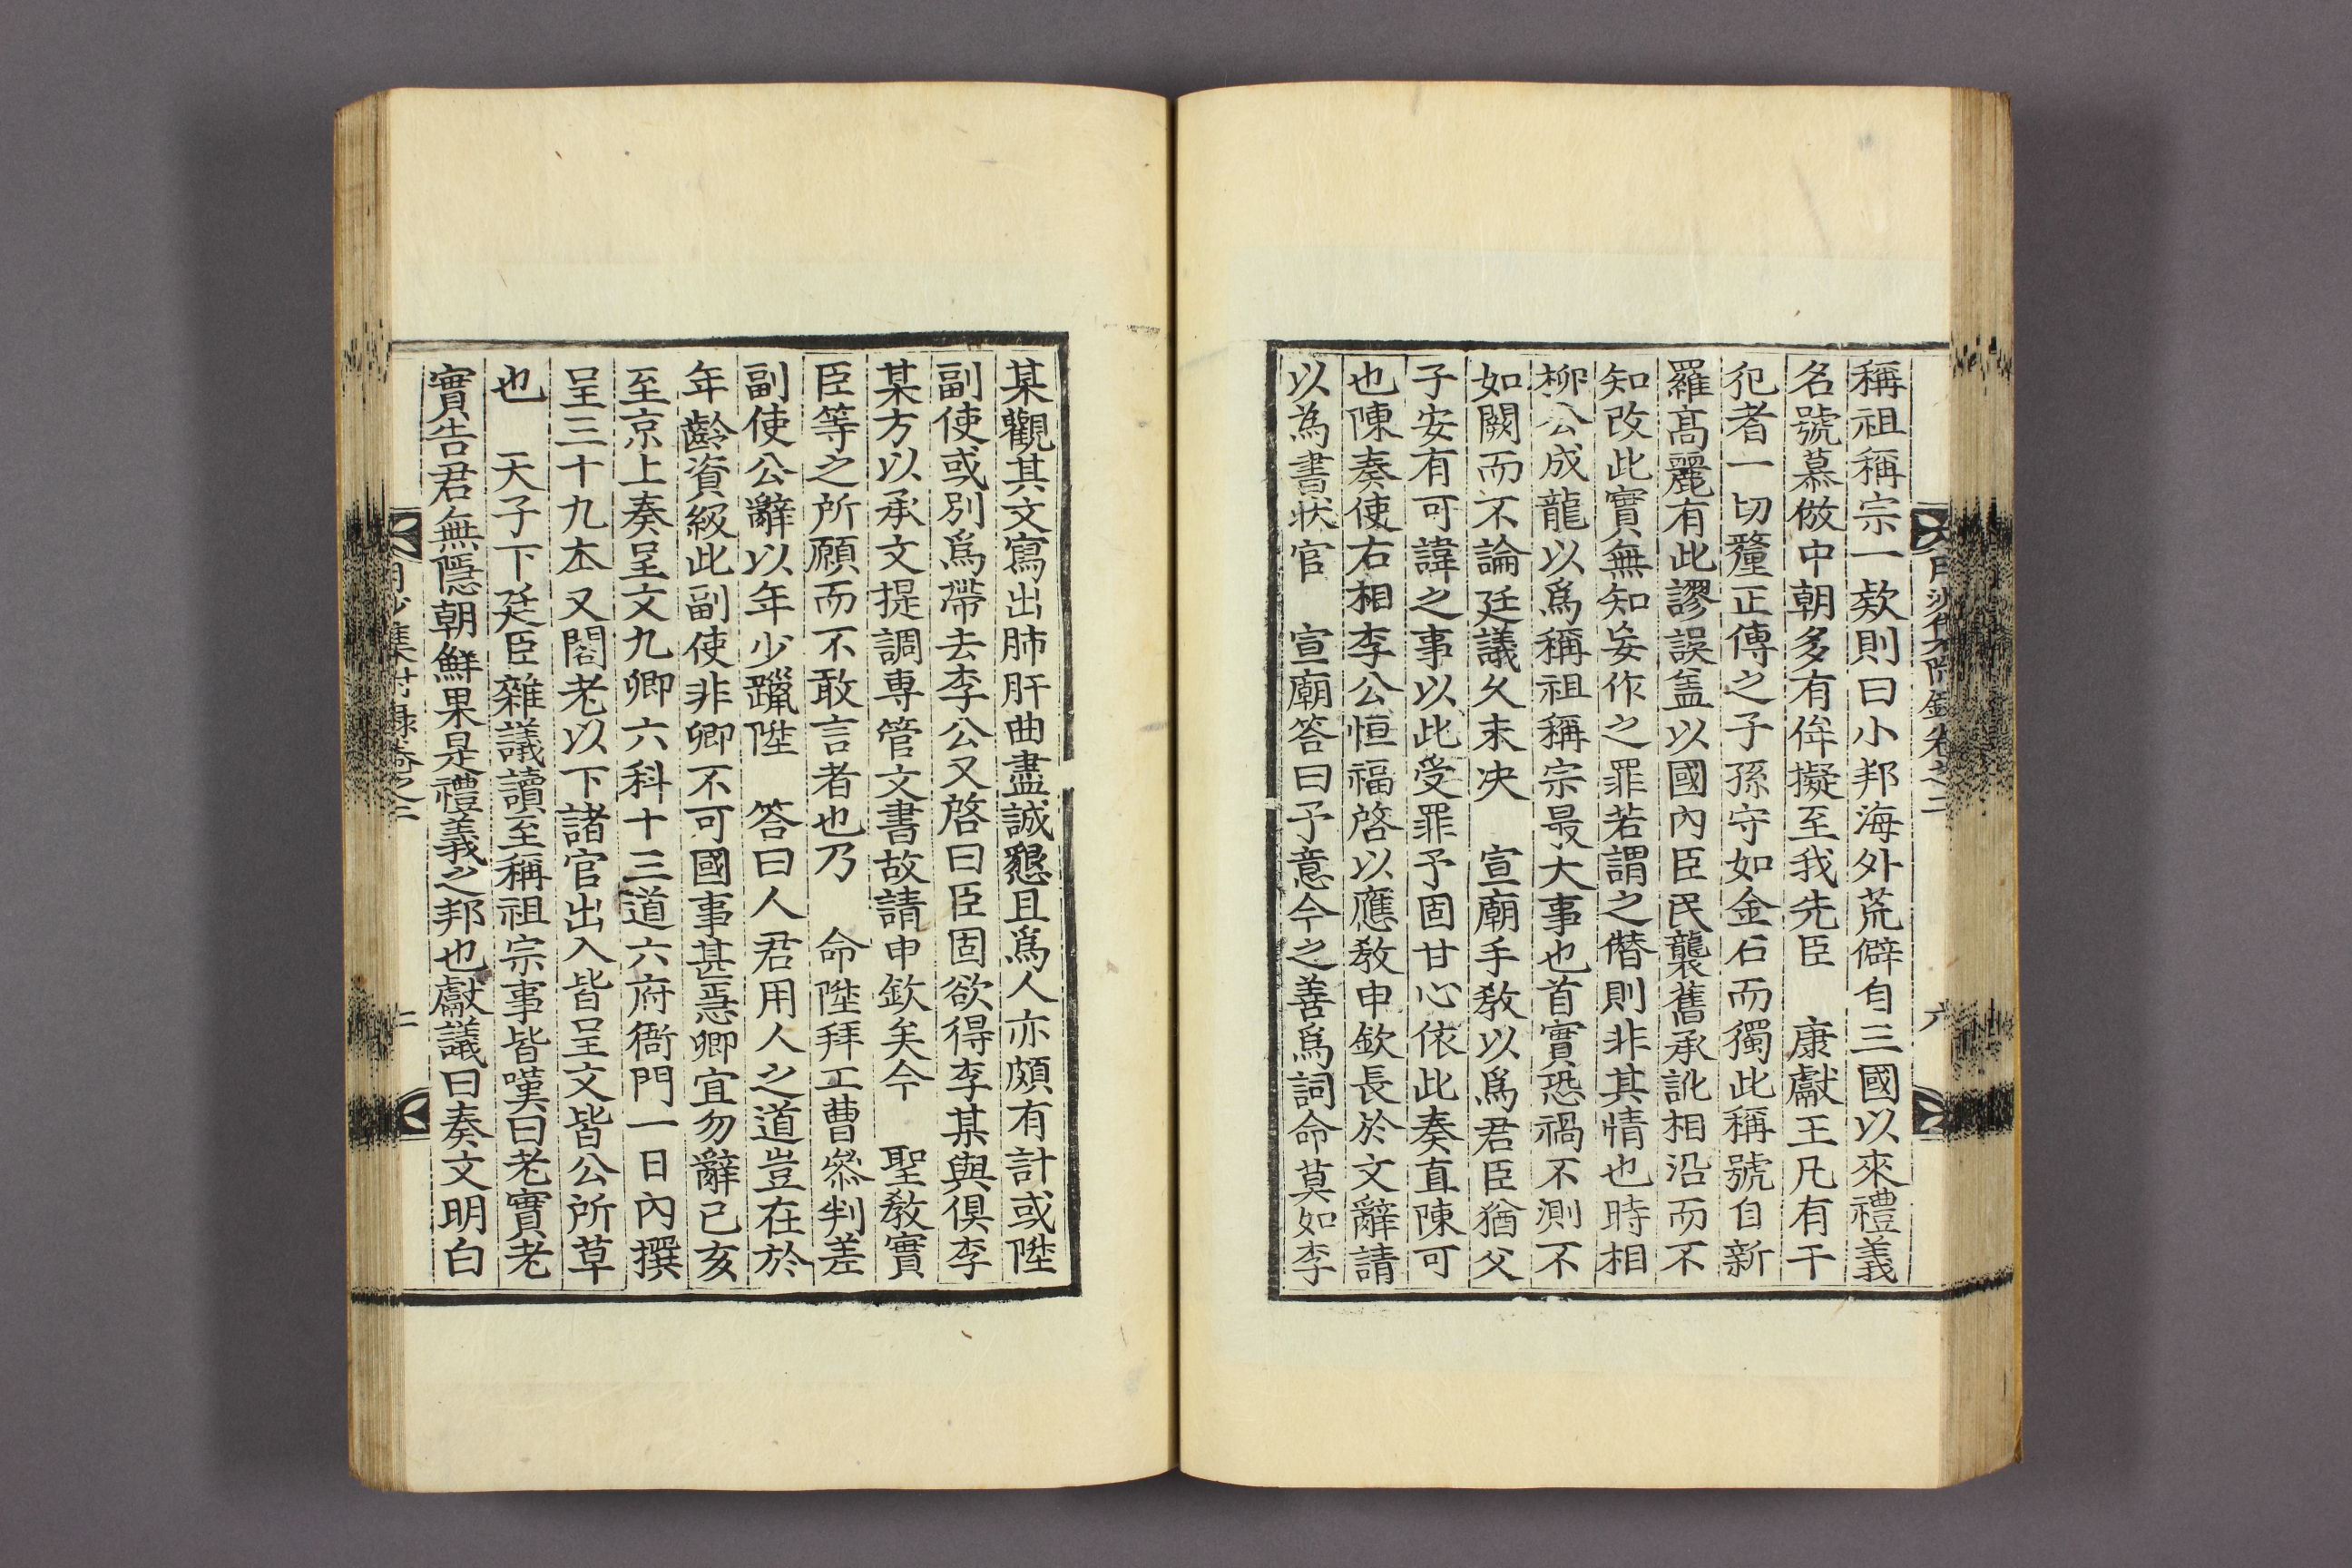 稱祖稱宗一欵則曰小邦海外荒僻自三國以來禮義
名號慕倣中朝多有侔擬至我先臣 康獻王凡有干
犯者一切釐正傳之子孫守如金石而獨此稱號自新
羅髙麗有此謬誤盖以國內臣民襲舊承訛相沿而不
知改此實無知妄作之罪若謂之僭則非其情也時相
柳公成龍以爲稱祖稱宗最大事也首實恐禍不測不
如闕而不論廷議久未决 宣廟手敎以爲君臣猶父
子安有可諱之事以此受罪予固甘心依此奏直陳可
也陳奏使右相李公恒福啓以應敎申欽長於文辭請
以為書狀官 宣廟答曰予意今之善爲詞命莫如李
某觀其文寫出肺肝曲盡誠懇且爲人亦頗有計或陞
副使或別爲帶去李公又啓曰臣固欲得李某與俱李
某方以承文提調専管文書故請申欽矣今 聖敎實
臣等之所願而不敢言者也乃 命陞拜工曹叅判差
副使公辭以年少躐陞 答曰人君用人之道豈在於
年齡資級此副使非卿不可國事甚急卿宜勿辭已亥
至京上奏呈文九卿六科十三道六府衙門一日內撰
呈三十九本又閣老以下諸官出入皆呈文皆公所草
也 天子下廷臣雜議讀至稱祖宗事皆嘆曰老實老
實告君無隱朝鮮果是禮義之邦也獻議曰奏文明白